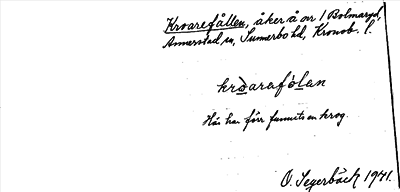 Kroarefållen, åker å nr 1 Bolmaryd,
Annerstad sn, Sunnerbo hd, Kronob. l.
kroarafòlan
Här har förr funnits en krog.
O. Segerbäck 1941.